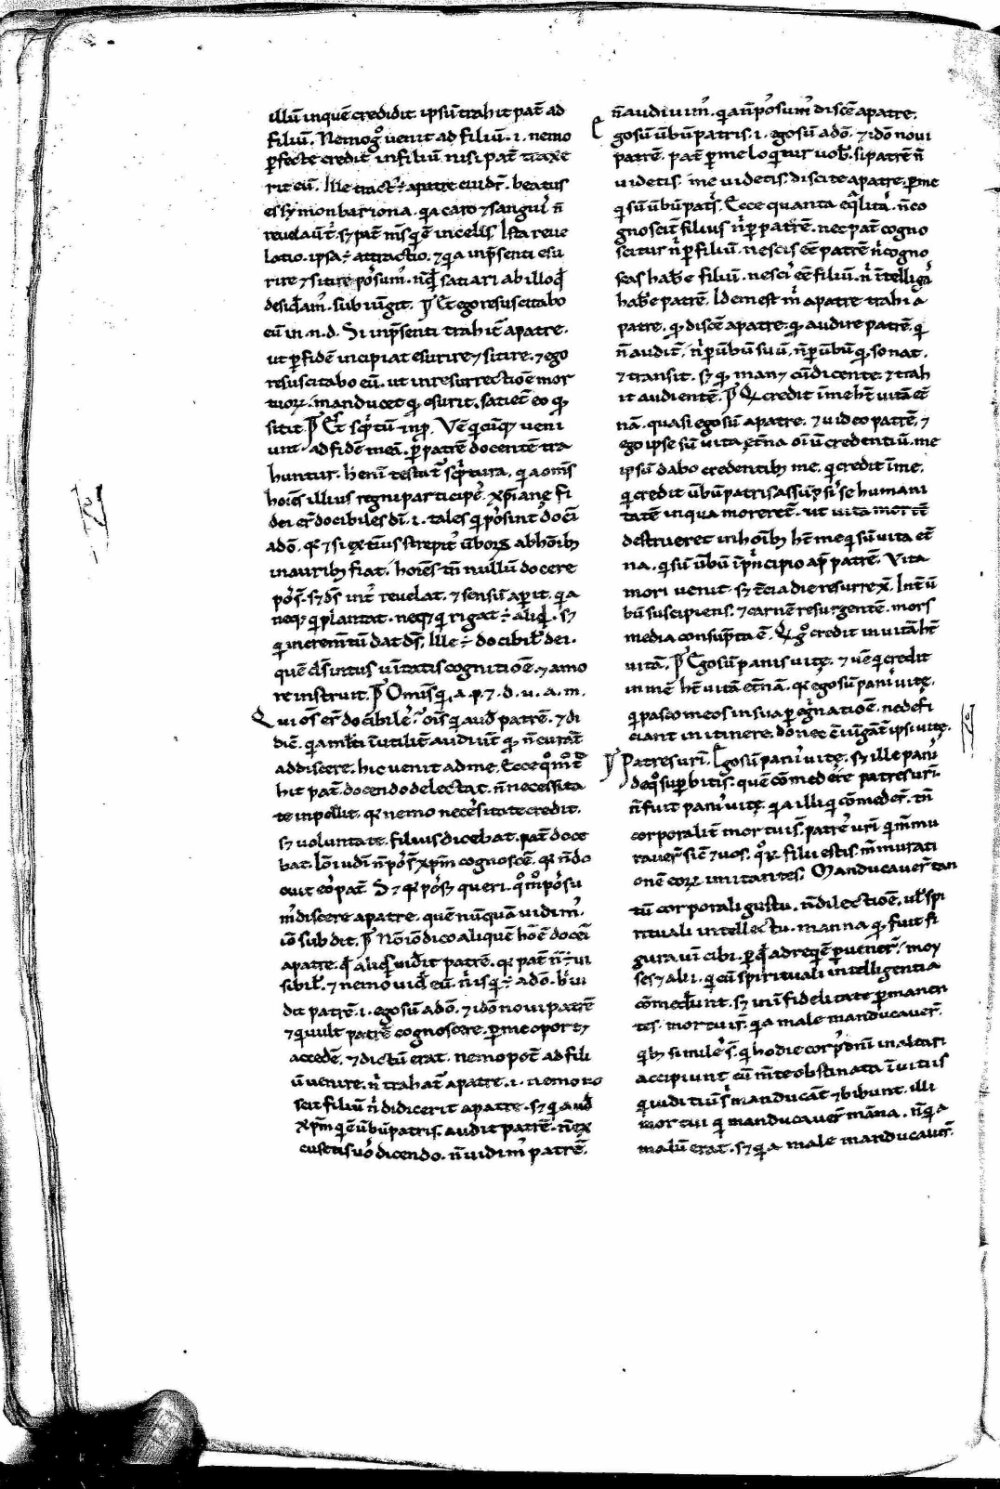 illū inquē credidit. ipsū trahit pat̄ ad
filiū. Nemo gͦ uenit ad filiū. i. nemo
ꝑfecte credit in filiū nisi pat̄ traxe
rit eū. Ille tractꝰ ÷ a patre cui dr̄. beatus
es symon bariona. qa caro ⁊ sanguis n̄
reuelauit t̄. sꝫ pat̄ mꝰ qi ē in celis. Ista reue
latio. ipsa ÷ attractio. ⁊ qa in p̄senti esu
rire ⁊ sitire possumꝰ. satiari ab illo
desideramꝰ. subiūgit. Et ego resuscitabo
eū in .n.d. Si in p̄senti trahit̄ a patre.
ut ꝑ fidē incipiat esurire ⁊ sitire. ⁊ ego
resuscitabo eū. ut in resurrectiōe mor
tuoꝝ. manducet qd esurit. satiet̄ eo qd
sitit. Et sc̄ptū in ꝓp. Vē qicūqꝫ ueni
unt. ad fidē meā. ꝑ patrē docentē tra
huntur. h̄ eni testat̄ scptura. qa om̄s
hoīes illius regni participes. xp̄iane fi
dei er̄ docibiles dī. i. tales qi possint doceri
a dō. qꝛ ⁊ si extiꝰ strepitꝰ ūboꝝ ab hoībꝫ
in auribꝫ fiat. hoīes tn̄ nullū docere
pos̄t. sꝫ ds̄ intꝰ reuelat. ⁊ sensū aꝑit. qa
neqꝫ qi plantat. neqꝫ qi rigat ÷ aliqd. sꝫ
qi incremtū dat ds̄. Ille ÷ docibil̄ dei.
quē ds̄ intus ūitatis cognitiōe. ⁊ amo
re instruit. Omīs qi. a. p. ⁊. d. u. a. m.
Qui os̄ er̄ docibiles. oīs qi aud̄ patrē. ⁊ di
dic̄. qa mlti iutiliter audiūt qd n̄ curāt
addiscere. hic uenit ad me. Ecce qomͦ t̄
hit pat̄. docendo delectat. n̄ necessita
te inpellit. qꝛ nemo necessitate credit.
sꝫ uoluntate. filius dicebat. pat̄ doce
bat. Iō iudī n̄ pos̄t xp̄m cognosce. qꝛ n̄ do
cuit eos pat̄. S⁊ qꝛ posꝫ queri. qomͦ possu
mꝰ discere a patre. quē nūquā uidimꝰ.
iō subdit. Nō iō dico aliquē hoīē doceri
a patre. qd aliqs uid̄it patrē. qꝛ pat̄ n̄ ÷ ui
sibil̄. ⁊ nemo uid̄ eū. n̄ is qi ÷ a dō. h̄ ui
dit patrē. i. ego sū a dō. ⁊ iō noui patrē
⁊ qi uult patrē cognoscere. ꝑ me oportꝫ
accedē. ⁊ dictū erat. nemo pot̄ ad fili
ū uenire. n̄ trahat̄ a patre. i. nemo no
scit filiū n̄ didicerit a patre. sꝫ qi aud̄
xp̄m qi ē ūbū patris. audit patrē. n̄ ex
custis uo dicendo. n̄ uidimꝰ patrē.
n̄ audiuimꝰ. qa n̄ possumꝰ disce a patre.
Ego sū ūbū patris. i. ego sū a dō. ⁊ iō noui
patrē. pat̄ ꝑ me loqitur uob̄. si patrē n̄
uidetis. me uidetis. discite a patre. ꝑ me
qi sū ūbū patris. Ecce quanta eqlitas. n̄ co
gnoscit̄ filius n̄ ꝑ patrē. nec pat̄ cogno
scitur n̄ ꝑ filiū. nescis eē patrē n̄ cogno
scas habe filiū. nescis eē filiū. n̄ itelligas
habe patrē. Idem est a patre trahi a
patre. qd disce a patre. qd audire patrē. qi
n̄ audit̄. n̄ ꝑ ūbū suū. n̄ ꝑ ūbū qd sonat.
⁊ transit. sꝫ qd manꝫ cū dicente. ⁊ trah
it audientē. Qi credit ī me ht̄ uitā et̄
nā. quasi ego sū a patre. ⁊ uideo patrē. ⁊
ego ipse sū uita et̄na oīū credentiū. me
ipsū dabo credentibꝫ me. qi credit ī me.
qi credit ūbū patris assūpsisse humani
tatē in qua moreret̄. ut uita mortē
destrueret in hoībꝫ ht̄ me qi sū uita et̄
na. qi sū ūbū ī pncipio apd patrē. Vita
mori uenit. sꝫ t̄cia die resurrex̄. Int̄ ū
bū suscipiens. ⁊ carnē resurgentē. mors
media consūpta ē. Qi gͦ credit in uitā ht̄
uitā. Ego sū panis uite. ⁊ uē qi credit
in mē ht̄ uitā et̄nā. qꝛ ego sū panis uite.
qi pasco meos in sua ꝑegnatiōe. ne defi
ciant in itinere. donec ēiūgāt ipsi uite.
Patres uri. Ego sū panis uite. sꝫ ille panis
de qo suꝑbitis. quē comedere patres uri.
n̄ fuit panis uite. qa illi qi comeder̄. tn̄
corporalit̄ mortui st̄. patres uri qi mꝰmu
rauer̄ sic̄ ⁊ uos. qoꝝ filii estis. mꝰmurati
onē eoꝝ imitantes. Manducauer̄ tan
tū corporali gustu. n̄ dilectiōe. ul̄ spi
rituali intellectu. manna qd fuit fi
gura uiui cibi. ꝑ qd ad reqiē ꝑuener̄. moy
ses ⁊ alii. qi eū spirituali intelligentia
comederunt. sꝫ in fidelitate ꝑmanen
tes. mortui st̄. qa male manducauer̄.
qibꝫ similes st̄. qi hodie corpꝰ dnī in altari
accipiunt cū mēte obstinata ī uitiis
qi iudiciū s manducāt ⁊ bibunt. illi
mortui qi manducauer̄ māna. n̄ qa
malū erat. sꝫ qa male manducauer̄.